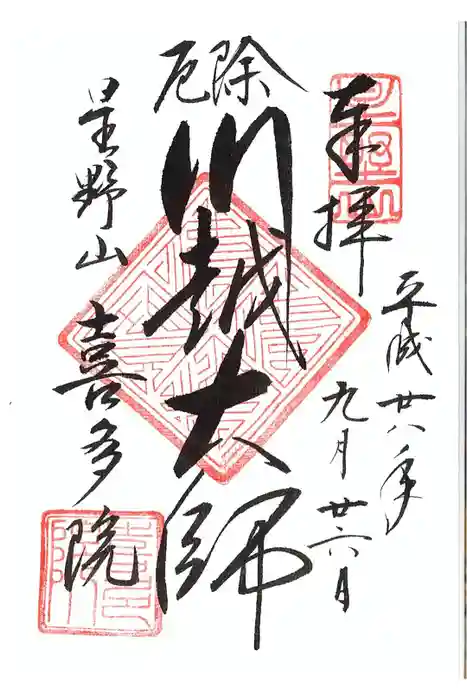 奉拝
平成廿八年
九月廿六日
厄除
川越大師
星野山
喜多院